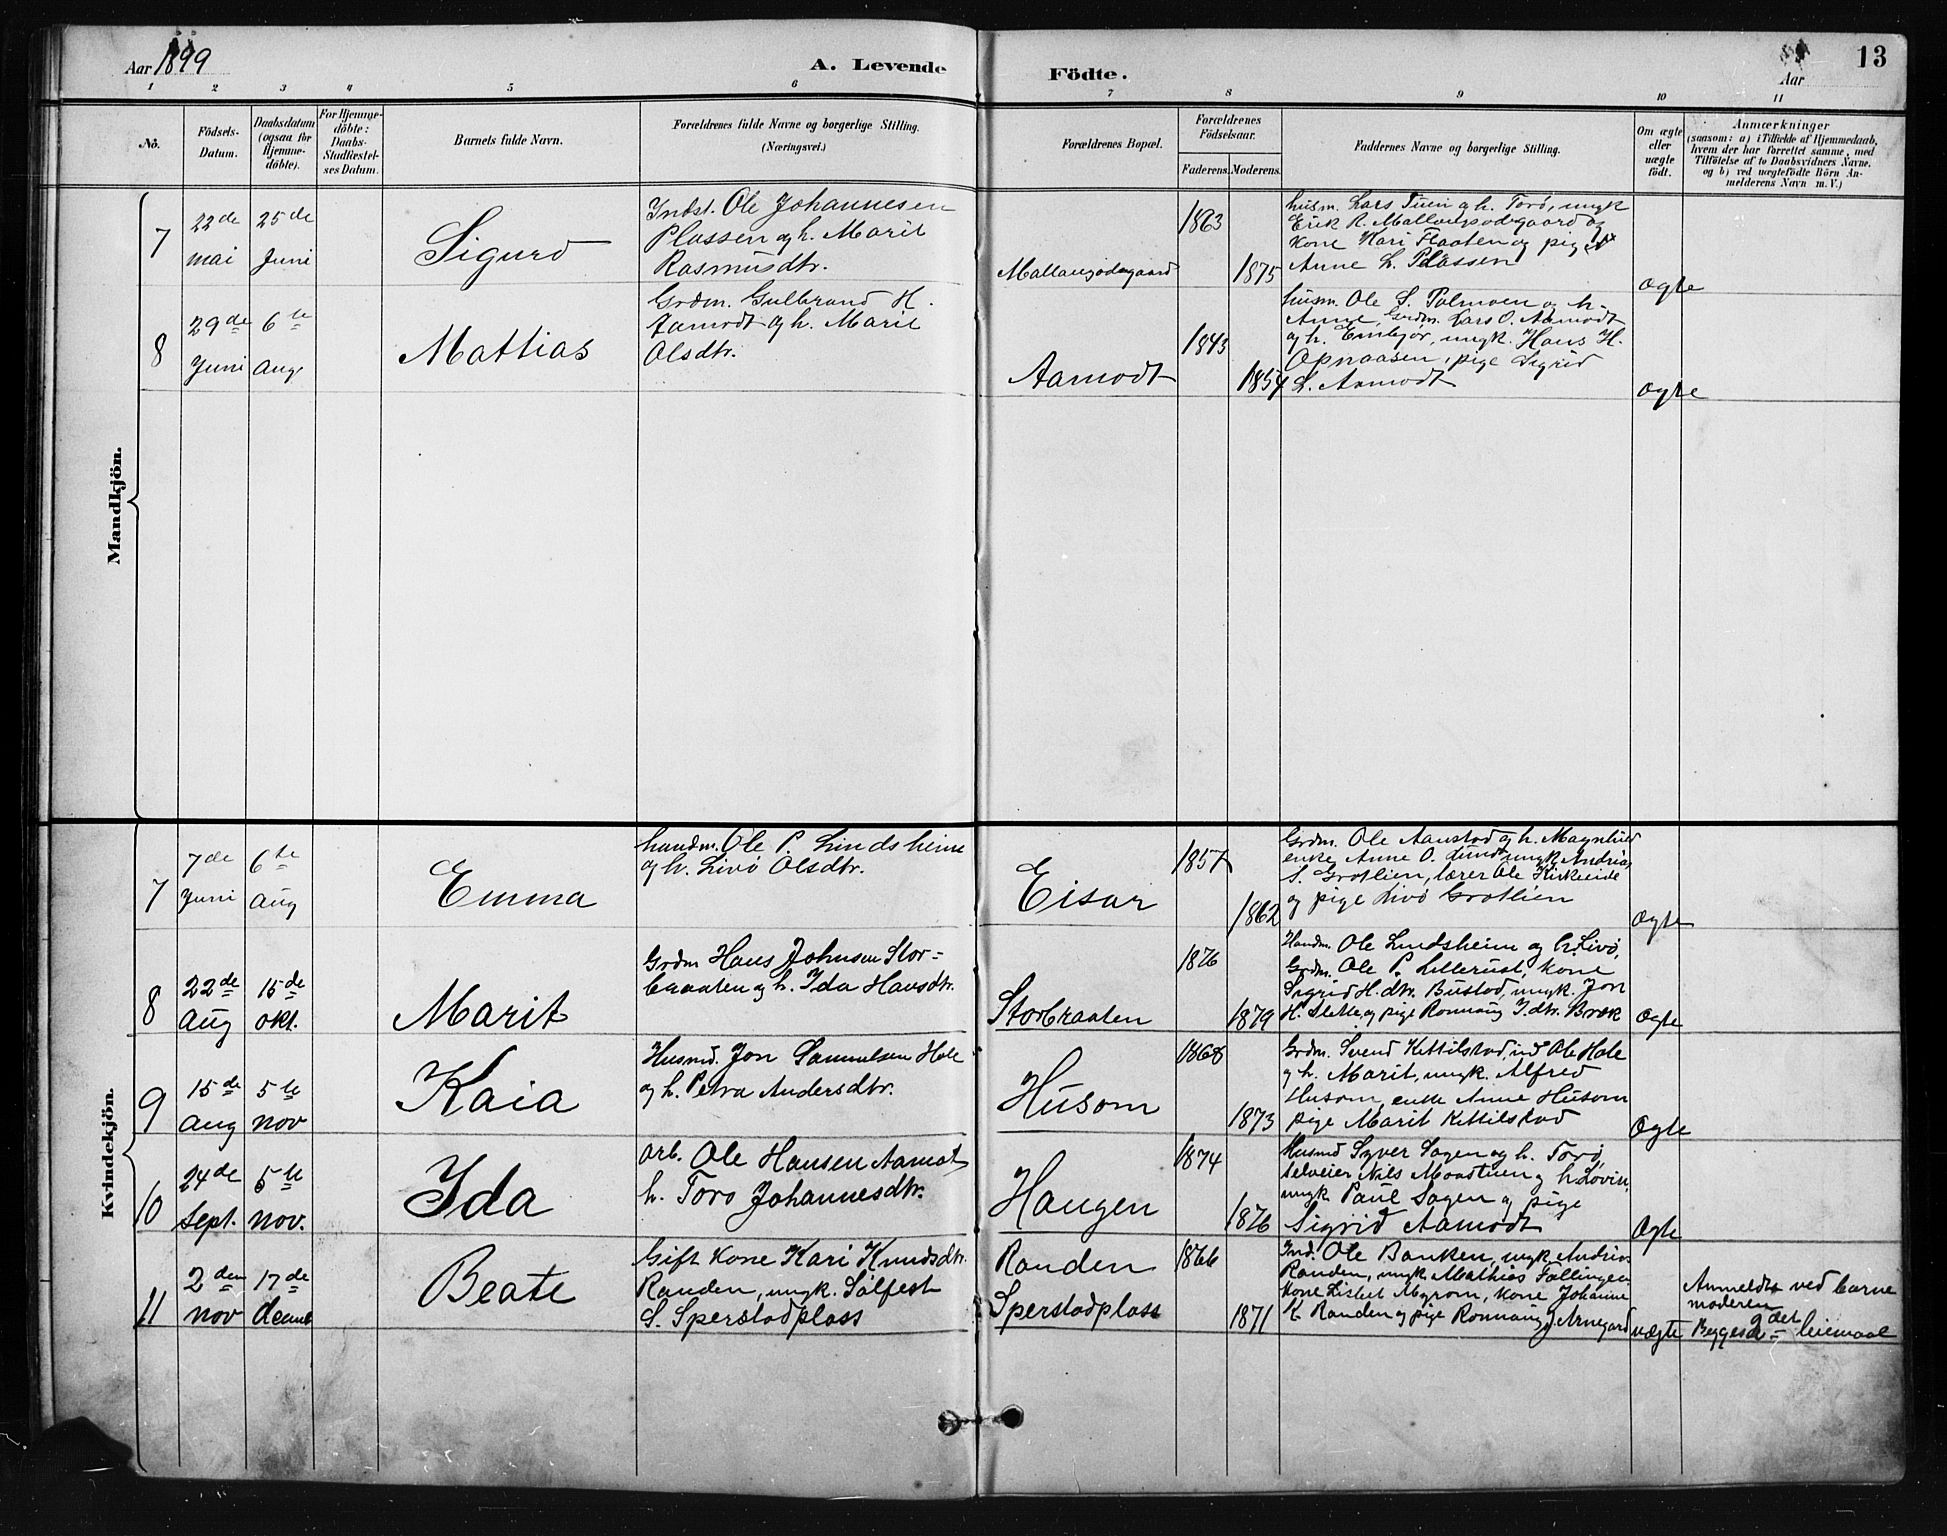 Aar 1899
A. Levende
Födte.
Aar
13
1 2 3 4 5 6 7 8 9 10 11
No.
Födsels-
Datum.
Daabsdatum
(ogsaa for
Hjemme-
döbte).
For Hjemme-
döbte:
Daabs-
Stadfæstel-
ses Datum.
Barnets fulde Navn.
Forældrenes fulde Navne og borgerlige Stilling.
(Næringsvei.)
Forældrenes Bopæl.
Forældrenes
Födselsaar.
Faderens. Moderens.
Faddernes Navne og borgerlige Stilling.
Om ægte
eller
uægte
födt.
Anmærkninger
(saasom: a) i Tilfælde af Hjemmedaab,
hvem der har forrettet samme, med
Tilföielse af to Daabsvidners Navne,
og b) ved uægtefödte Börn An-
melderens Navn m. V.)
Mandkjön.
7
22de
mai
25de
Juni
Sigurd
Indst. Ole Johannesen
Plassen og h. Marit
Rasmusdtr.
Mallangsødegaard
1863
1875
husm. Lars Tuen og h. Torø, ungk
Erik R. Mallangsødegaard og
Kone Kari Flaaten og pige
Anne L. Plassen
Ægte
8
29de
Juni
6te
Aug.
Mattias
Grdm. Gulbrand H.
Aamodt og h. Marit
Olsdtr.
Aamodt
1843
1854
husm. Ole S. Polmoen og h.
Anne, Grdm. Lars O. Aamodt
og h. Embjør, ungk. Hans H.
Opnaasen, pige Sigrid
L. Aamodt
Ægte
Kvindekjön.
7
7de
Juni
6te
Aug
Emma
handm. Ole P. Lindsheim
og h. Livø Olsdtr.
Eisar
1857
1862
Grdm. Ole Aanstad og h. Magnhild
enke Anne O. Lund ungk. Andrias
S. Grotlien, lærer Ole Kirkeeide
og pige Livø Grotlien
Ægte
8
22de
Aug
15de
Okt.
Marit
Grdm Hans Johnsen Stor-
braaten og h. Ida Hansdtr.
Storbraaten
1876
1879
Handm. Ole Lindsheim og h. Livø,
Grdm. Ole P. Lillerust, Kone
Sigrid H.dtr. Bustad, ungk. Jon
H. Slette og pige Ronnaug J.dtr. Bræk
Ægte
9
15de
Aug
5te
Nov
Kaia
Husmd. Jon Samuelsen Hole
og h. Petra Andersdtr.
Husom
1868
1873
Grdm. Svend Kettilstad, ind Ole Hole
og h. Marit, ungk. Alfred
Husom, enke Anne Husom
pige Marit Kettilstad
Ægte
10
24de
Sept.
5te
Nov.
Ida
Arb. Ole Hansen Aamot
h. Toro Johannesdtr.
Haugen
1874
1876
Husmd Syver Sagen og h. Torø,
selveier Nils Moastuen og h. Lovise,
ungk Paul Sagen og pige
Sigrid Aamodt
Ægte
11
2den
Nov
17de
Decmb
Beate
Gift Kone Kari Knudsdtr.
Randen, ungk. Sølfest
S. Sperstadplass
Randen
Sperstadplass
1866
1871
Ind. Ole Banken, ungk. Andrias
Randen, ungk. Mathias Fallingen
Kone Lisbet Myrom, Kone Johanne
K. Randen og pige Ronnaug J. Arnegard
Uægte
Anmeldt ved barne
moderen
Begges 2det leiemaal